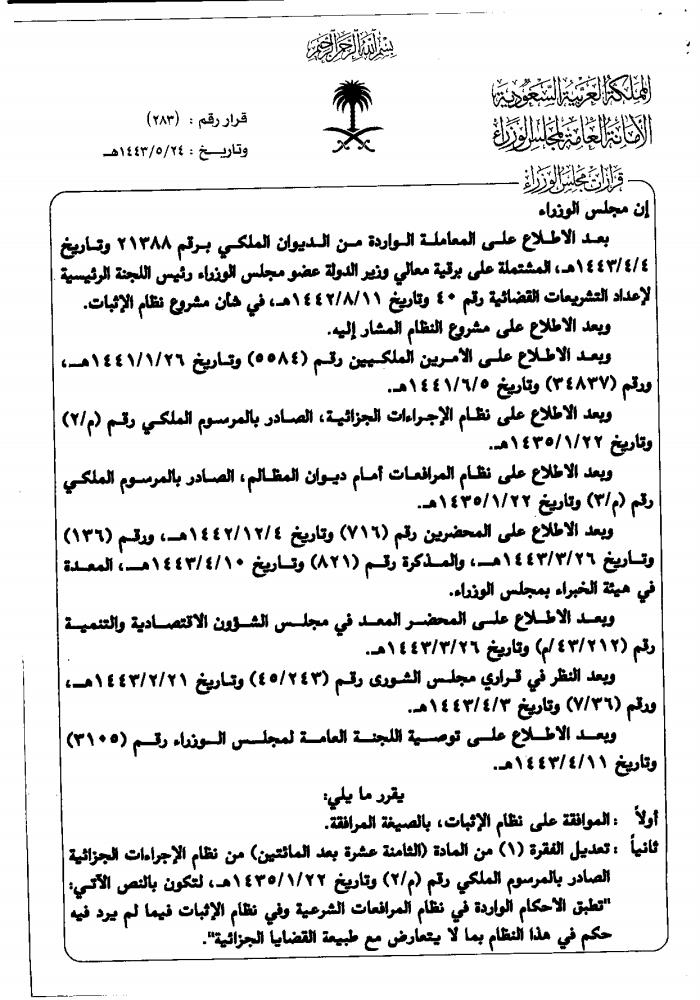 بسم الله الرحمن الرحيم
المملكة العربية السعودية
الأمانة العامة لمجلس الوزراء
قرار رقم : (٢٨٣)
وتاريخ : ١٤٤٣/٥/٢٤هـ
قرارات مجلس الوزراء
إن مجلس الوزراء
بعد الاطلاع على المعاملة الواردة من الديوان الملكي برقم ٢١٣٨٨ وتاريخ
١٤٤٣/٤/٤هـ، المشتملة على برقية معالي وزير الدولة عضو مجلس الوزراء رئيس اللجنة الرئيسية
لإعداد التشريعات القضائية رقم ٤٠ وتاريخ ١٤٤٢/٨/١١هـ، في شأن مشروع نظام الإثبات.
وبعد الاطلاع على مشروع النظام المشار إليه.
وبعد الاطلاع على الأمرين الملكيين رقم (٥٥٨٤) وتاريخ ١٤٤١/١/٢٦هـ،
ورقم (٣٤٨٣٧) وتاريخ ١٤٤١/٦/٥هـ.
وبعد الاطلاع على نظام الإجراءات الجزائية، الصادر بالمرسوم الملكي رقم (م/٢)
وتاريخ ١٤٣٥/١/٢٢هـ.
وبعد الاطلاع على نظام المرافعات أمام ديوان المظالم، الصادر بالمرسوم الملكي
رقم (م/٣) وتاريخ ١٤٣٥/١/٢٢هـ.
وبعد الاطلاع على المحضرين رقم (٧١٦) وتاريخ ١٤٤٢/١٢/٤هـ، ورقم (١٣٦)
وتاريخ ١٤٤٣/٣/٢٦هـ، والمذكرة رقم (٨٢١) وتاريخ ١٤٤٣/٤/١٠هـ، المعدة
في هيئة الخبراء بمجلس الوزراء.
وبعد الاطلاع على المحضر المعد في مجلس الشؤون الاقتصادية والتنمية
رقم (٤٣/٢١٢/م) وتاريخ ١٤٤٣/٣/٢٦هـ.
وبعد النظر في قراري مجلس الشورى رقم (٤٥/٢٤٣) وتاريخ ١٤٤٣/٢/٢١هـ،
ورقم (٧/٣٦) وتاريخ ١٤٤٣/٤/٣هـ.
وبعد الاطلاع على توصية اللجنة العامة لمجلس الوزراء رقم (٣١٠٥)
وتاريخ ١٤٤٣/٤/١١هـ.
يقرر ما يلي:
أولاً : الموافقة على نظام الإثبات، بالصيغة المرافقة.
ثانياً : تعديل الفقرة (١) من المادة (الثامنة عشرة بعد المائتين) من نظام الإجراءات الجزائية
الصادر بالمرسوم الملكي رقم (م/٢) وتاريخ ١٤٣٥/١/٢٢هـ، لتكون بالنص الآتي:
"تطبق الأحكام الواردة في نظام المرافعات الشرعية وفي نظام الإثبات فيما لم يرد فيه
حكم في هذا النظام بما لا يتعارض مع طبيعة القضايا الجزائية".